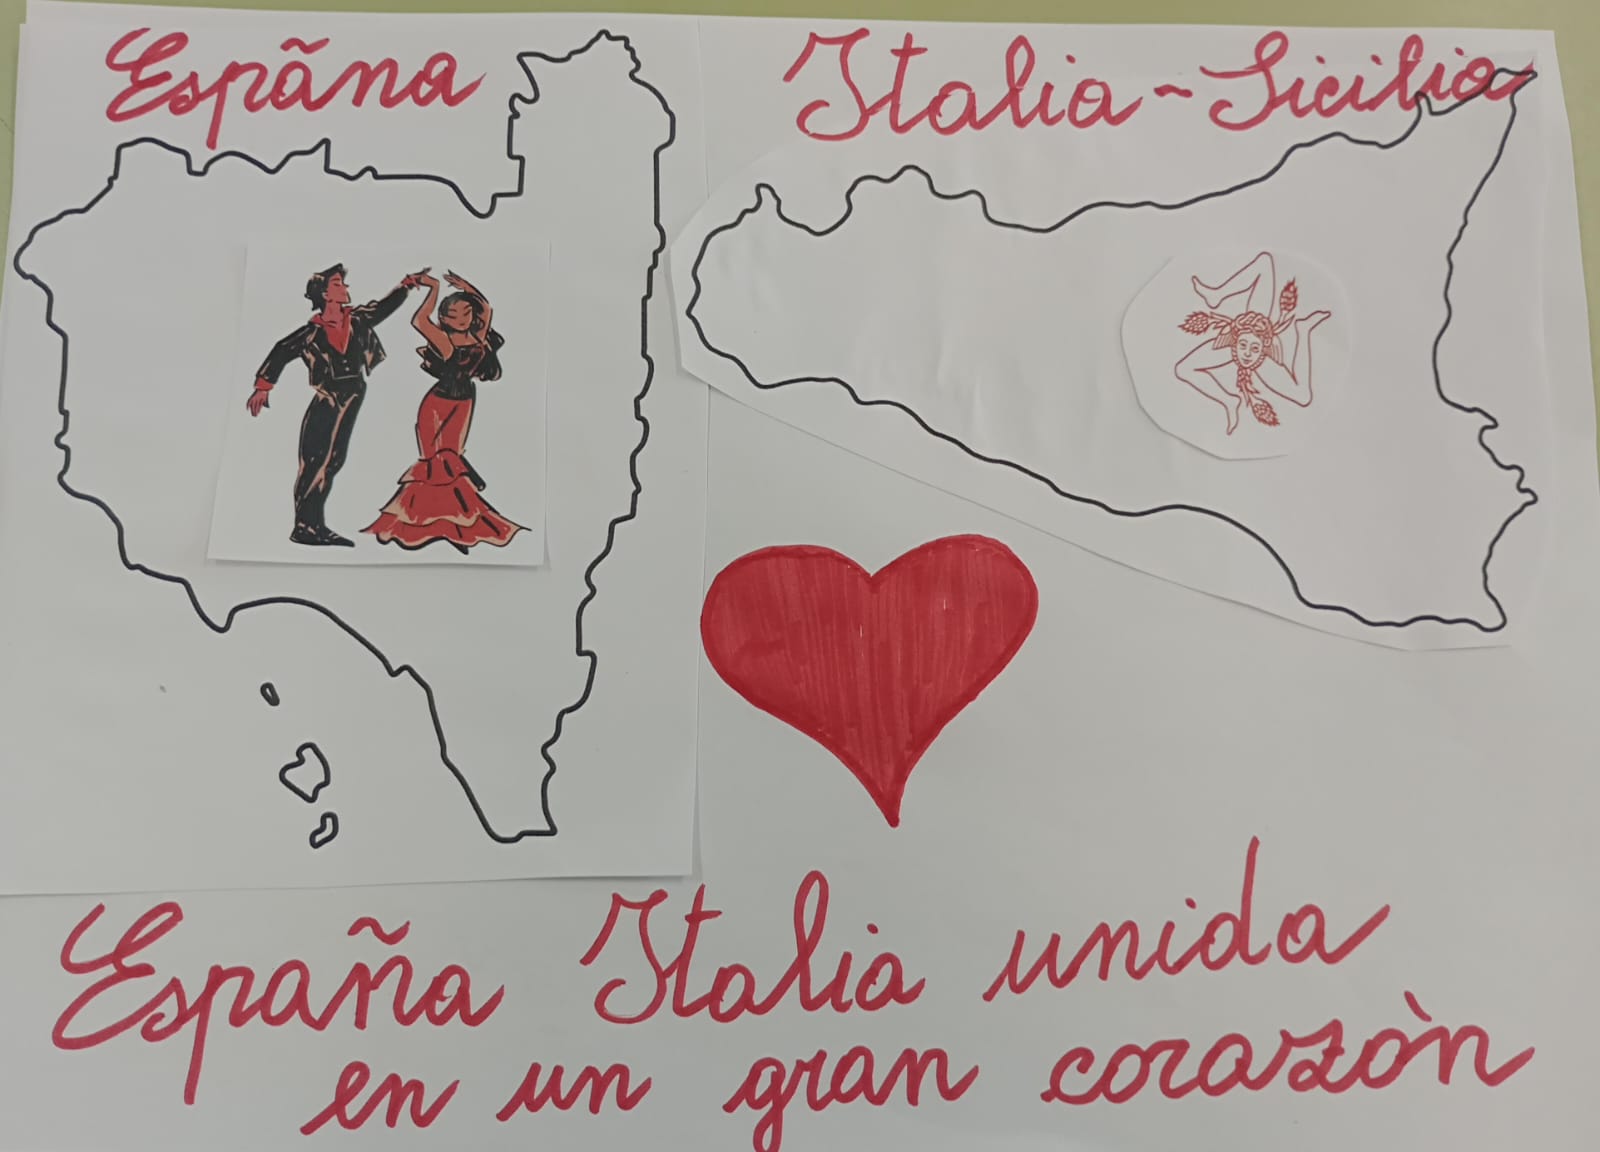 Espãna
Italia-Sicilia
España Italia unida
en un gran corazòn